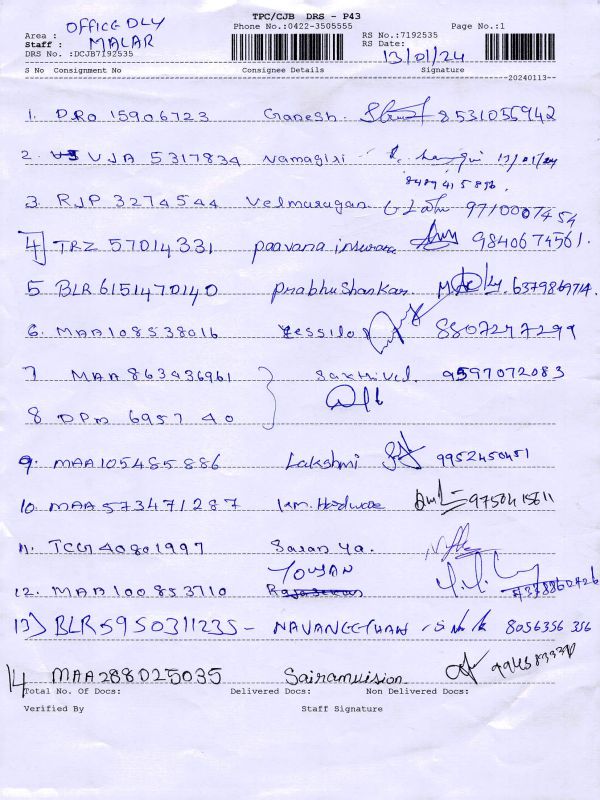 TPC/CJB DRS - P43
Area : OFFICE DLY Phone No.:0422-3505555 Page No.:1
Staff : MALAR RS No.:7192535
DRS No.:DCJB7192535 RS Date: 13/01/24
S No Consignment No Consignee Details Signature
20240113
1. DRO 15906723 Ganesh. 8531055942
2. VJA 5317834 Namagiri 13/01/24
8489415896.
3 RJP 3274544 Velmurugan 9710007454
4 TRZ 57014331 Paavana 9840674561.
5 BLR 6151470140 Prabhu Shankar. 6379869714.
6. MAA 108538016 8807247299
7 MAA 863436961 Sakthivel. 9597072083
8 DPM 6957 40
9. MAA 105485886 Lakshmi 9952450451
10. MAA 573471287 9750415611
11. TCG 40801997 Saran ya.
TOUSAN
12. MAA 100853710 7378860726
13) BLR5950311235- NAVANEETHAN 8056356 356
14 MAA 288025035 Sairamvision
Total No. Of Docs: Delivered Docs: Non Delivered Docs:
Verified By Staff Signature